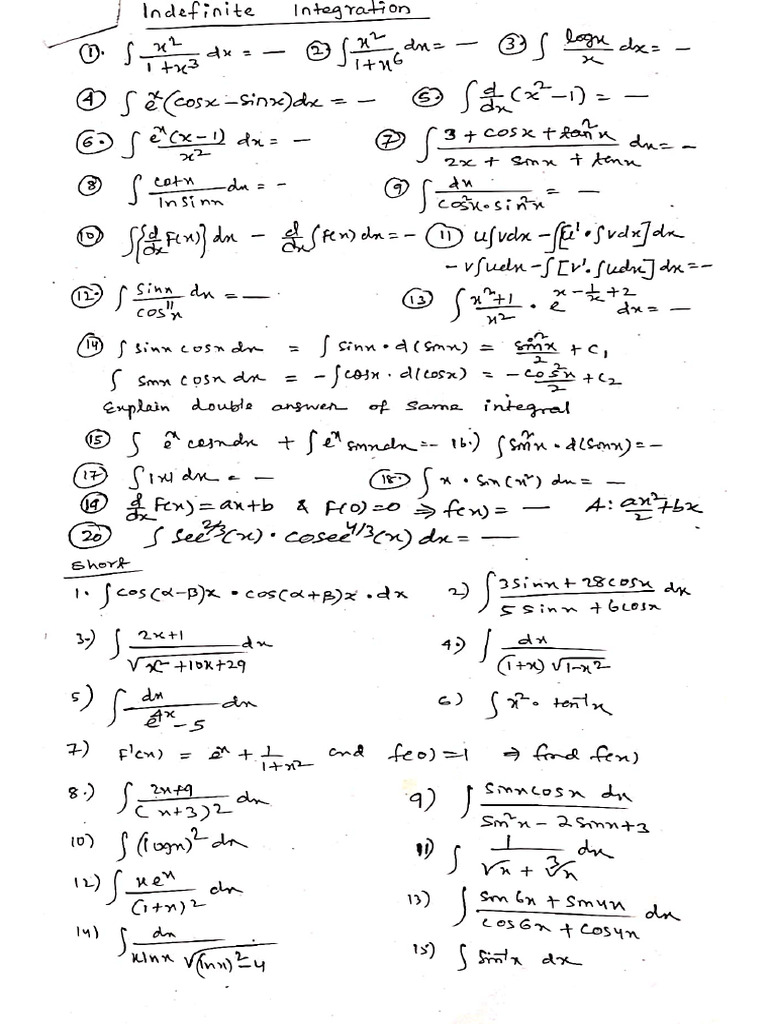 Indefinite Integration
①. ∫ x²/(1+x³) dx = — ② ∫ x²/(1+x⁶) dx = — ③ ∫ logx/x dx = —
④ ∫ eˣ(cosx – sinx)dx = — ⑤. ∫ d/dx (x²–1) = —
⑥. ∫ eˣ(x–1)/x² dx = — ⑦ ∫ (3 + cosx + tan²x)/(2x + sinx + tanx) dx = —
⑧ ∫ cotx/(lnsinx) dx = – ⑨ ∫ dx/(cos²x·sin²x) = —
⑩ ∫{d/dx F(x)} dx – d/dx ∫F(x) dx = – ⑪ u∫vdx – ∫[u'·∫vdx]dx
– v∫udx – ∫[v'·∫udx] dx = –
⑫. ∫ sinx/cos¹¹x dx = — ⑬ ∫ (x²+1)/x² · e^(x – 1/x + 2) dx = —
⑭ ∫ sinx cosx dx = ∫ sinx·d(sinx) = sin²x/2 + C₁
∫ sinx cosx dx = –∫cosx·d(cosx) = –cos²x/2 + C₂
Explain double answer of same integral
⑮ ∫ eˣ cosxdx + ∫eˣ sinxdx = – 16.) ∫sin²x·d(sinx) = –
⑰ ∫|x| dx = — ⑱. ∫ x · sin(x²) dx = —
⑲ d/dx F(x) = ax+b & F(0)=0 ⇒ f(x) = — A: ax²/2 + bx
⑳ ∫ sec^(2/3)(x) · cosec^(4/3)(x) dx = —
Short
1. ∫cos(α–β)x · cos(α+β)x · dx 2) ∫ (3sinx + 28cosx)/(5sinx + 6cosx) dx
3.) ∫ (2x+1)/√(x²+10x+29) dx 4.) ∫ dx/((1+x)√(1–x²))
5) ∫ dx/(e⁴ˣ – 5) dx 6) ∫ x² · tan⁻¹x
7) F'(x) = eˣ + 1/(1+x²) and f(0)=1 ⇒ find f(x)
8.) ∫ (2x+9)/(x+3)² dx 9) ∫ sinxcosx dx/(sin²x – 2sinx+3)
10) ∫ (logx)² dx 11) ∫ 1/(√x + ∛x) dx
12) ∫ xeˣ/(1+x)² dx 13) ∫ (sin6x + sin4x)/(cos6x + cos4x) dx
14) ∫ dx/(xlnx √((lnx)²–4)) 15) ∫ sin⁻¹x dx